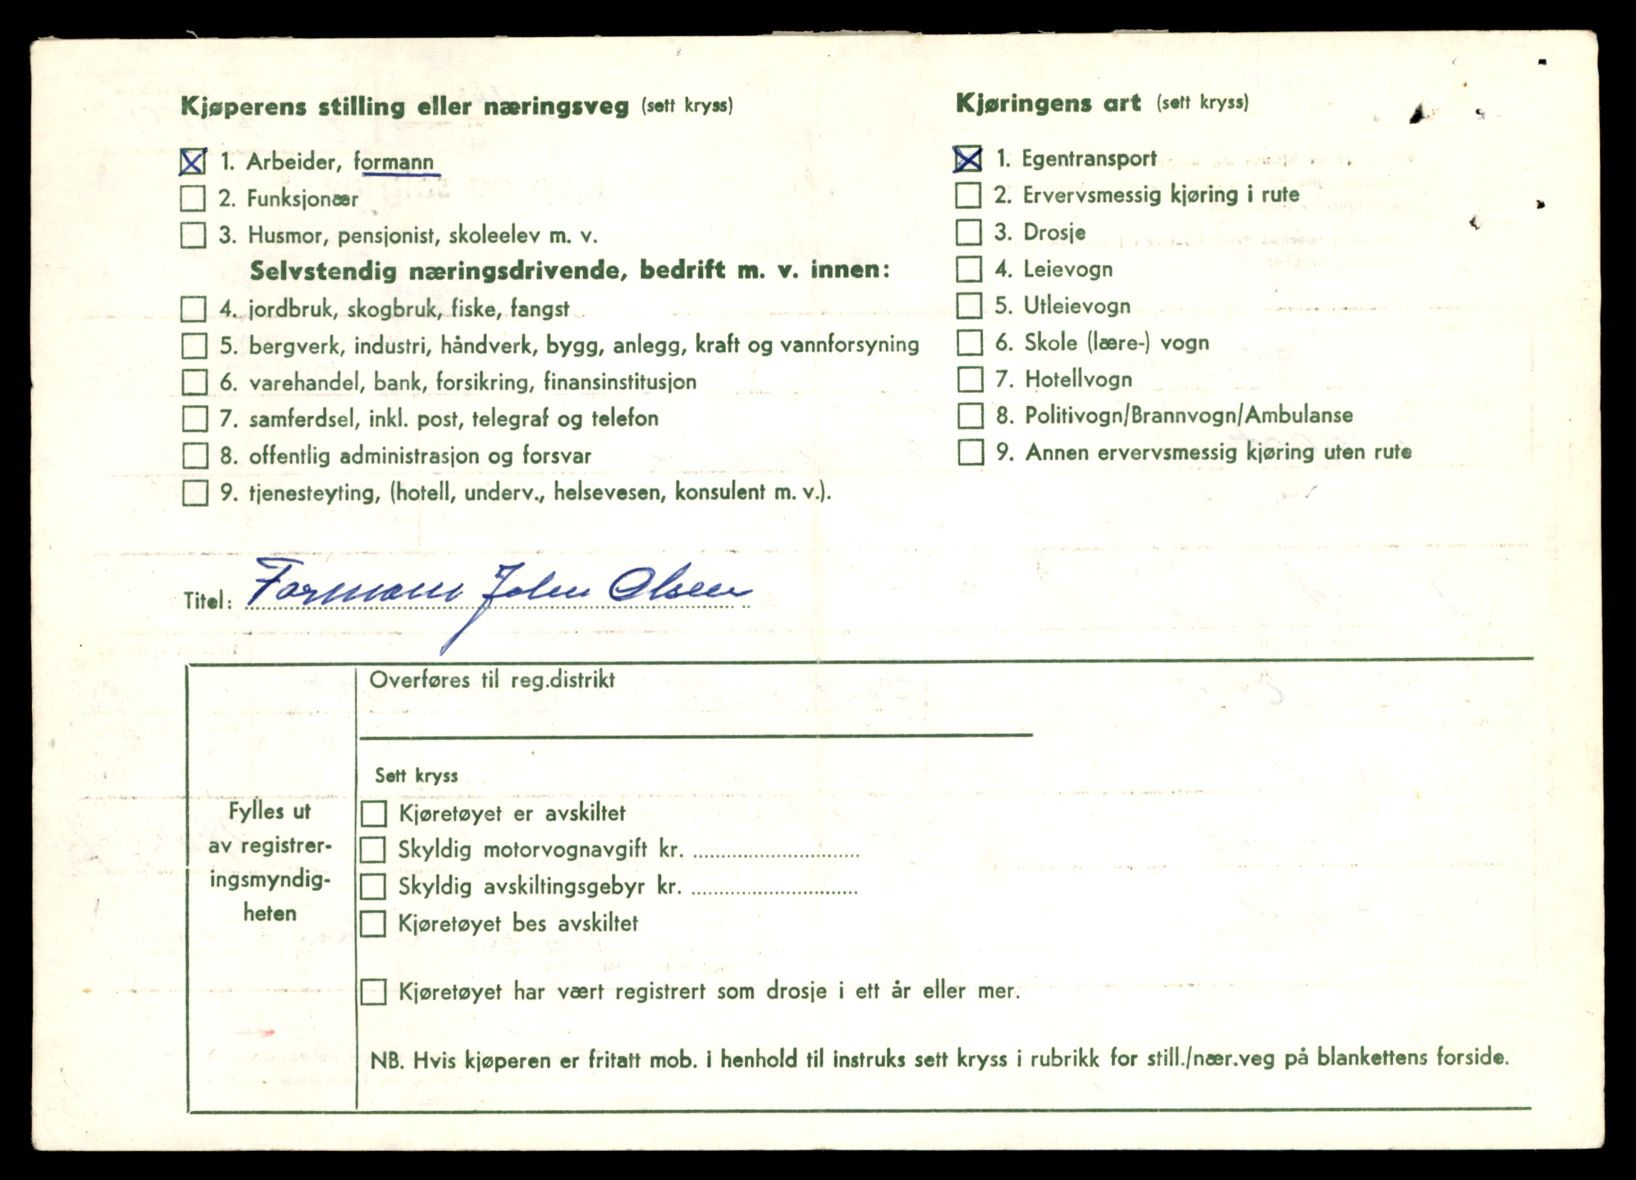 Kjøperens stilling eller næringsveg (sett kryss)
1. Arbeider, formann
2. Funksjonær
3. Husmor, pensjonist, skoleelev m. v.
Selvstendig næringsdrivende, bedrift m. v. innen:
4. jordbruk, skogbruk, fiske, fangst
5. bergverk, industri, håndverk, bygg, anlegg, kraft og vannforsyning
6. varehandel, bank, forsikring, finansinstitusjon
7. samferdsel, inkl. post, telegraf og telefon
8. offentlig administrasjon og forsvar
9. tjenesteyting, (hotell, underv., helsevesen, konsulent m. v.).
Kjøringens art (sett kryss)
1. Egentransport
2. Ervervsmessig kjøring i rute
3. Drosje
4. Leievogn
5. Utleievogn
6. Skole (lære-) vogn
7. Hotellvogn
8. Politivogn/Brannvogn/Ambulanse
9. Annen ervervsmessig kjøring uten rute
Titel: Formann John Olsen
Fylles ut
av registrer-
ingsmyndig-
heten
Overføres til reg.distrikt
Sett kryss
Kjøretøyet er avskiltet
Skyldig motorvognavgift kr.
Skyldig avskiltingsgebyr kr.
Kjøretøyet bes avskiltet
Kjøretøyet har vært registrert som drosje i ett år eller mer.
NB. Hvis kjøperen er fritatt mob. i henhold til instruks sett kryss i rubrikk for still./nær.veg på blankettens forside.